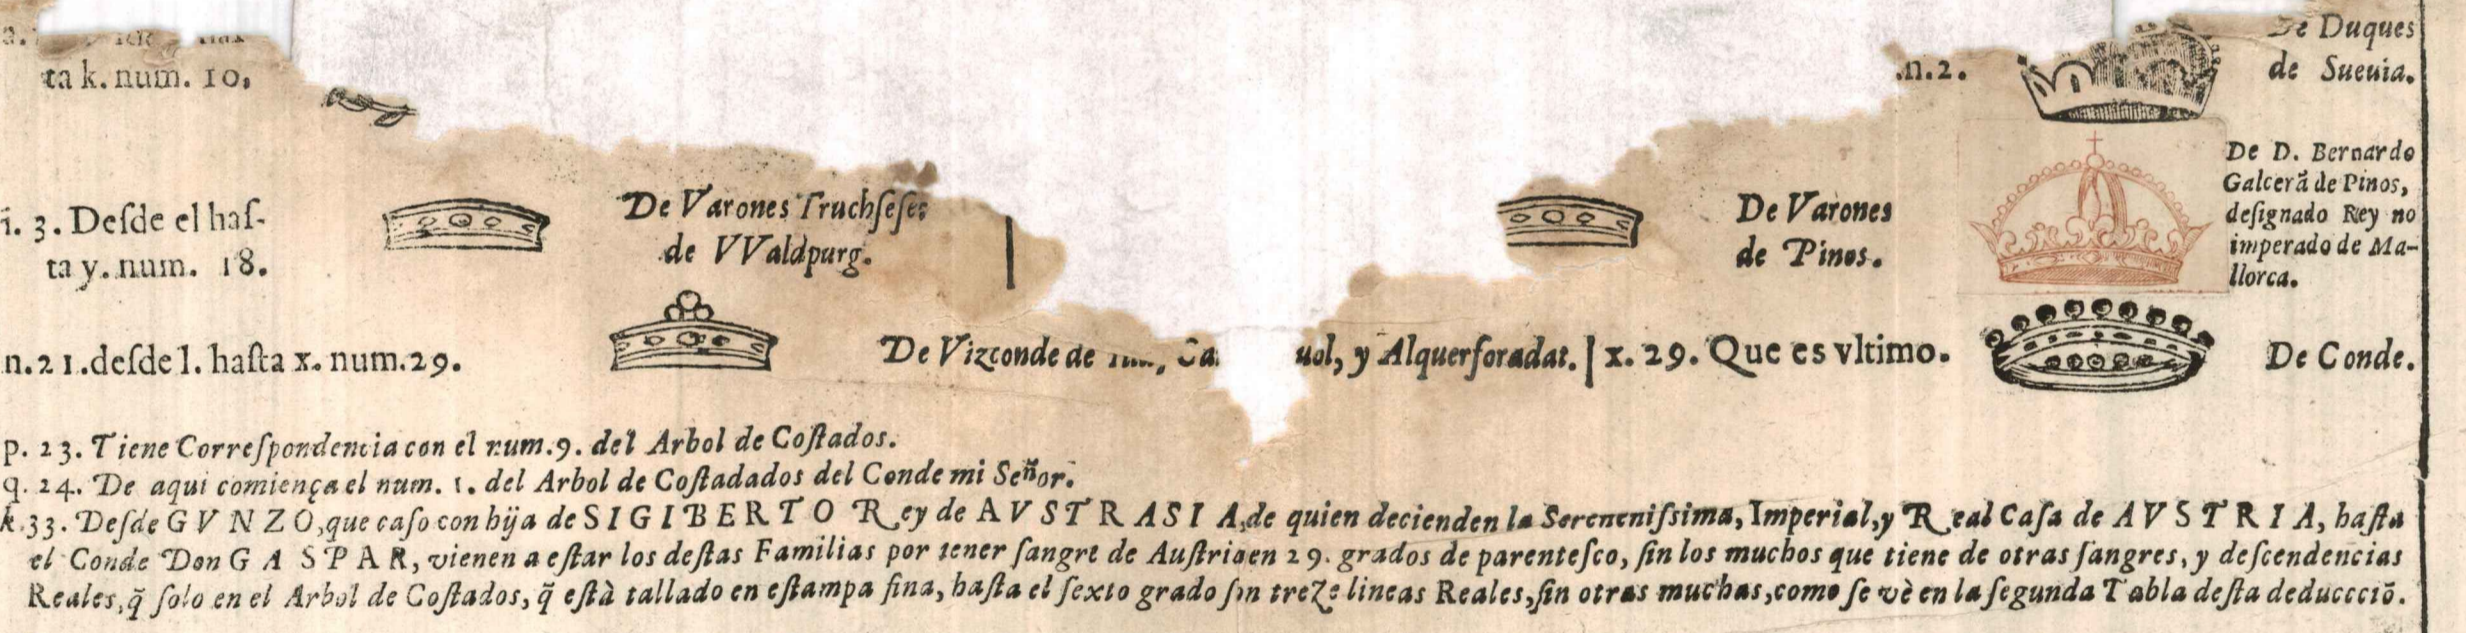 De Duques
ta k. num. 10,
.n.2.
de Sueuia.
De D. Bernardo
Galcerã de Pinos,
deſignado Rey no
imperado de Ma-
llorca.
ĩ. 3. Deſde el haſ-
ta y. num. 18.
De Varones Truchſeſes
de VValdpurg.
De Varones
de Pinos.
n.21.deſde l. haſta x. num.29.
De Vizconde de uol, y Alquerforadat. | x. 29. Que es vltimo.
De Conde.
p. 23. Tiene Correſpondencia con el num.9. del Arbol de Coſtados.
q. 24. De aqui comiença el num. 1. del Arbol de Coſtadados del Conde mi Señor.
k.33. Deſde GVNZO, que caſo con hija de SIGIBERTO Rey de AVSTRASIA, de quien decienden la Sereneniſsima, Imperial, y Real Caſa de AVSTRIA, haſta
el Conde Don GASPAR, vienen a eſtar los deſtas Familias por tener ſangre de Auſtria en 29. grados de parenteſco, ſin los muchos que tiene de otras ſangres, y deſcendencias
Reales, q̃ ſolo en el Arbol de Coſtados, q̃ eſtà tallado en eſtampa fina, haſta el ſexto grado ſon treze lineas Reales, ſin otras muchas, como ſe vè en la ſegunda Tabla deſta deduccciõ.